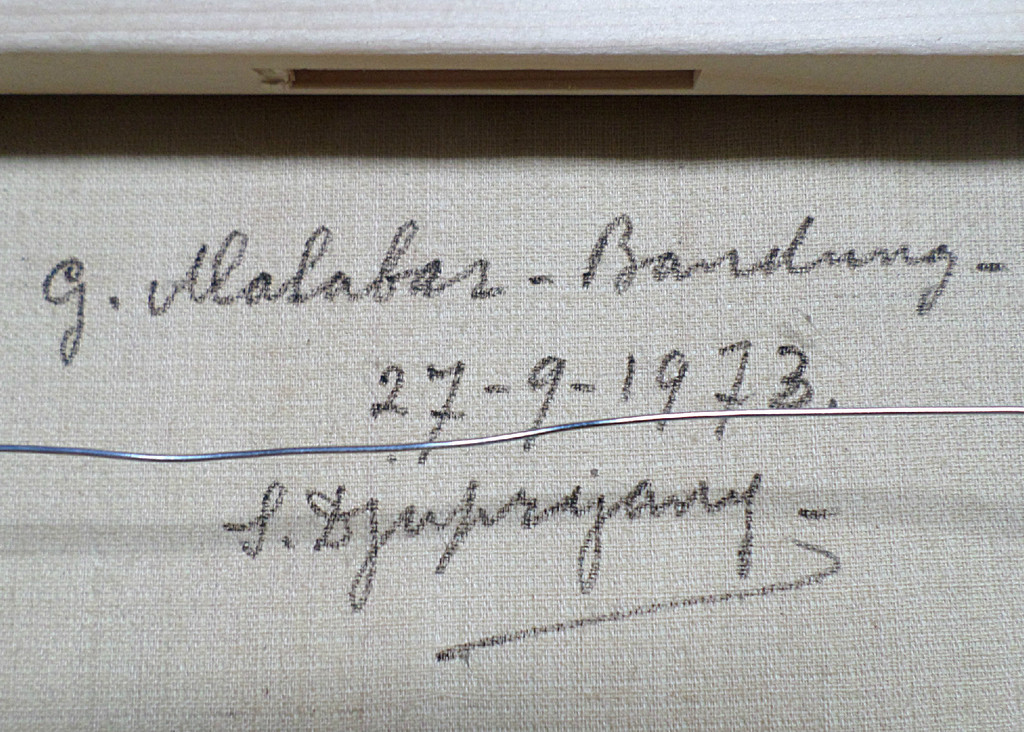 G. Malabar - Bandung -
27-9-1973.
S. Djuprijany -